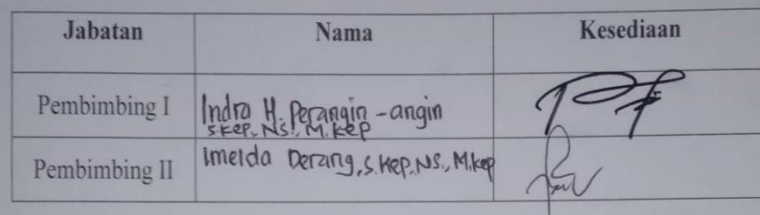 Jabatan Nama Kesediaan
Pembimbing I Indra H. Perangin-angin
S.Kep., Ns., M.Kep
Pembimbing II Imelda Derang, S.Kep., Ns., M.Kep